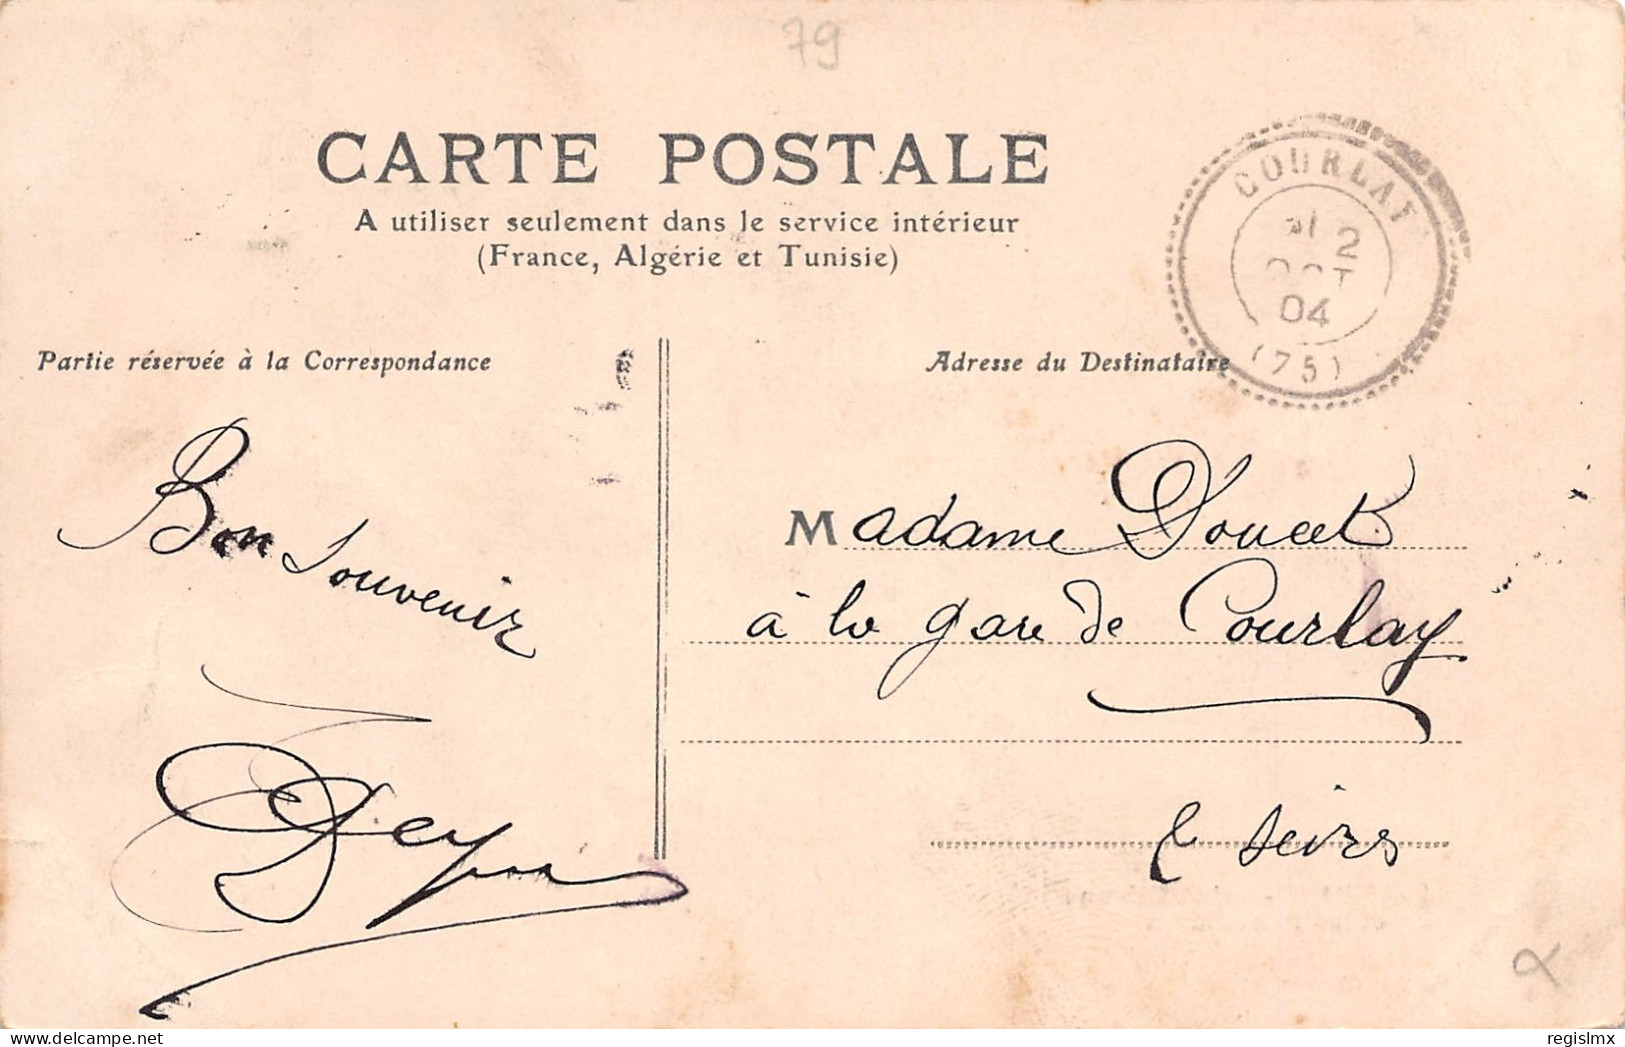 79
CARTE POSTALE
A utiliser seulement dans le service intérieur
(France, Algérie et Tunisie)
COURLAY
2
OCT
04
(75)
Partie réservée à la Correspondance
Adresse du Destinataire
Bon Souvenir
Madame Doucet
à la gare de Courlay
Sèvres
delcampe.net
regislmx